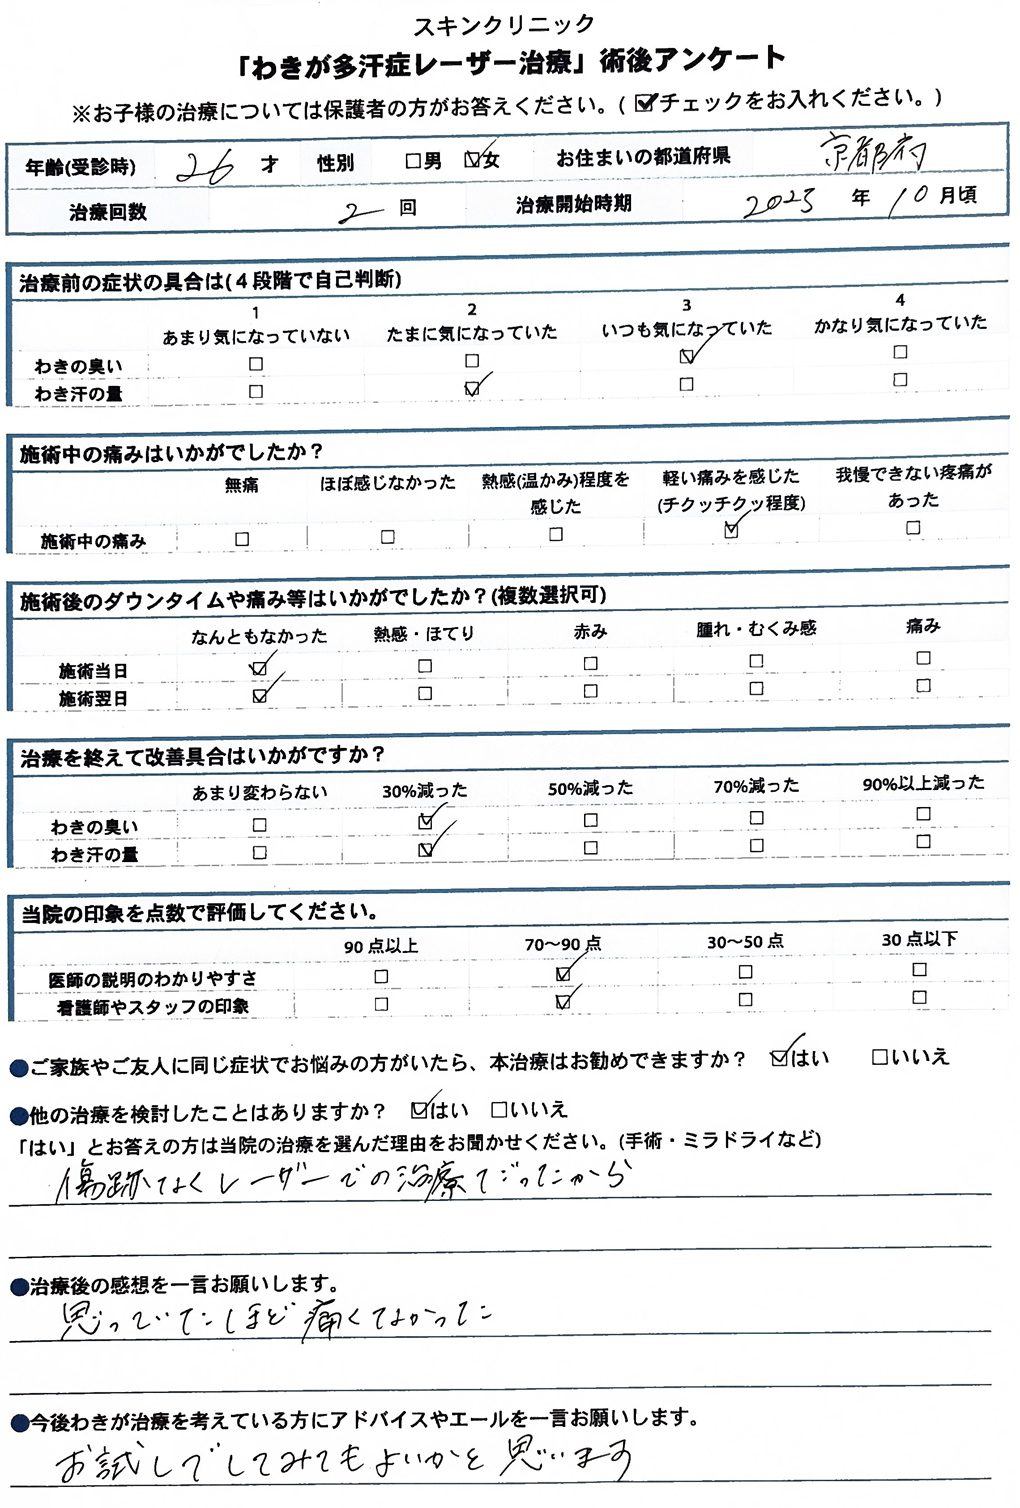 スキンクリニック
「わきが多汗症レーザー治療」術後アンケート
※お子様の治療については保護者の方がお答えください。(☑チェックをお入れください。)
年齢(受診時) 26 才 性別 □男 ☑女 お住まいの都道府県 京都府
治療回数 2 回 治療開始時期 2023 年 10 月頃
治療前の症状の具合は(4段階で自己判断)
1 2 3 4
あまり気になっていない たまに気になっていた いつも気になっていた かなり気になっていた
わきの臭い □ □ ☑ □
わき汗の量 □ ☑ □ □
施術中の痛みはいかがでしたか？
無痛 ほぼ感じなかった 熱感(温かみ)程度を 軽い痛みを感じた 我慢できない疼痛が
感じた (チクッチクッ程度) あった
施術中の痛み □ □ □ ☑ □
施術後のダウンタイムや痛み等はいかがでしたか？(複数選択可)
なんともなかった 熱感・ほてり 赤み 腫れ・むくみ感 痛み
施術当日 ☑ □ □ □ □
施術翌日 ☑ □ □ □ □
治療を終えて改善具合はいかがですか？
あまり変わらない 30%減った 50%減った 70%減った 90%以上減った
わきの臭い □ ☑ □ □ □
わき汗の量 □ ☑ □ □ □
当院の印象を点数で評価してください。
90点以上 70～90点 30～50点 30点以下
医師の説明のわかりやすさ □ ☑ □ □
看護師やスタッフの印象 □ ☑ □ □
●ご家族やご友人に同じ症状でお悩みの方がいたら、本治療はお勧めできますか？ ☑はい □いいえ
●他の治療を検討したことはありますか？ ☑はい □いいえ
「はい」とお答えの方は当院の治療を選んだ理由をお聞かせください。(手術・ミラドライなど)
傷跡なくレーザーでの治療だったから
●治療後の感想を一言お願いします。
思っていたほど痛くなかった
●今後わきが治療を考えている方にアドバイスやエールを一言お願いします。
お試しでしてみてもよいかと思います